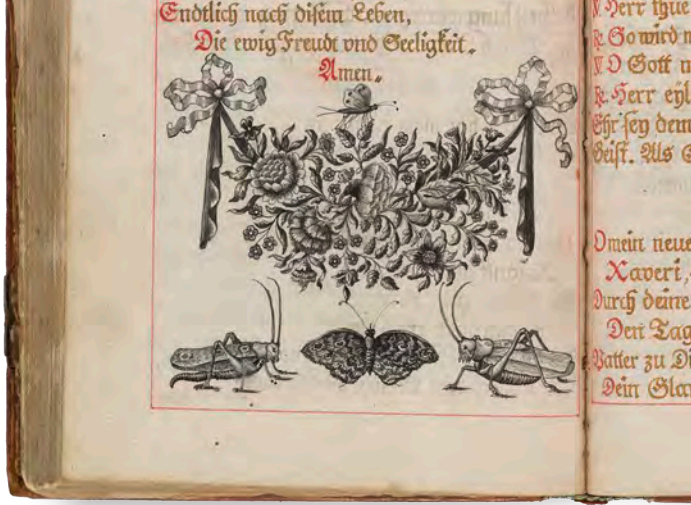 Endtlich nach disem Leben,
Die ewig Freudt vnd Seeligkeit.
Amen.
V. Herr thue
R. So wird m
V. O Gott m
R. Herr eyl
Ehr sey dem
Geist. Als
O mein neue
Xaveri,
Durch deine
Den Tag
Vatter zu Di
Dein Glan